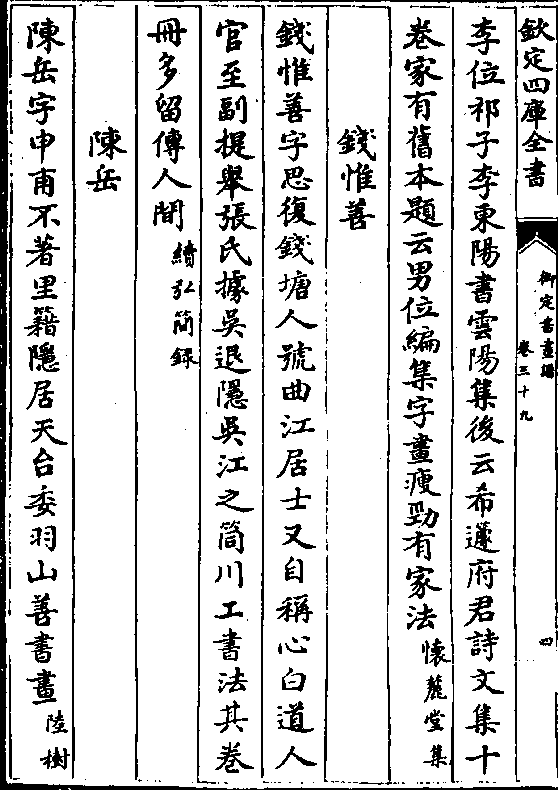 欽定四庫全書
御定書畫譜
卷三十九
四
李位祁子李東陽書雲陽集後云希蘧府君詩文集十
卷家有舊本題云男位編集字畫瘦勁有家法懷麓堂集
錢惟善
錢惟善字思復錢塘人號曲江居士又自稱心白道人
官至副提舉張氏據吳退隱吳江之筒川工書法其卷
冊多留傳人間續弘簡録
陳岳
陳岳字申甫不著里籍隱居天台委羽山善書畫陸樹